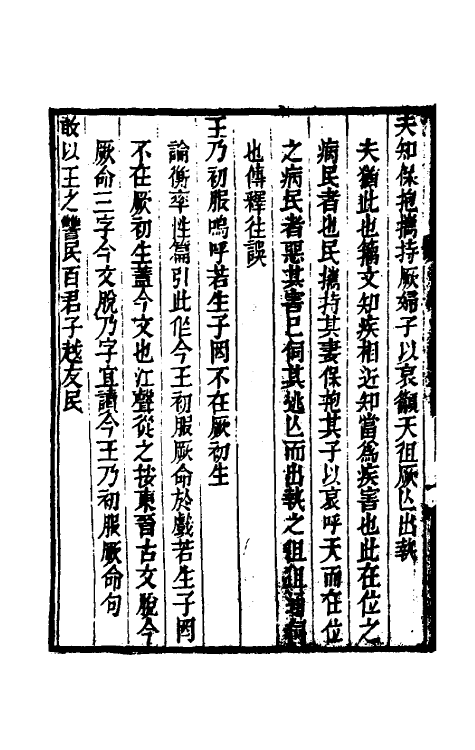 夫知保抱攜持厥婦子以哀籲天徂厥亾出執
夫猶此也籒文知疾相近知當爲疾害也此在位之
病民者也民攜持其妻保抱其子以哀呼天而在位
之病民者惡其害己伺其逃亾而出執之徂
也傳釋往誤
王乃初服嗚呼若生子罔不在厥初生
論衡率性篇引此作今王初服厥命於戲若生子罔
不在厥初生蓋今文也江聲從之按東晉古文脫今
厥命三字今文脫乃字宜讀今王乃初服厥命句
敢以王之讐民百君子越友民